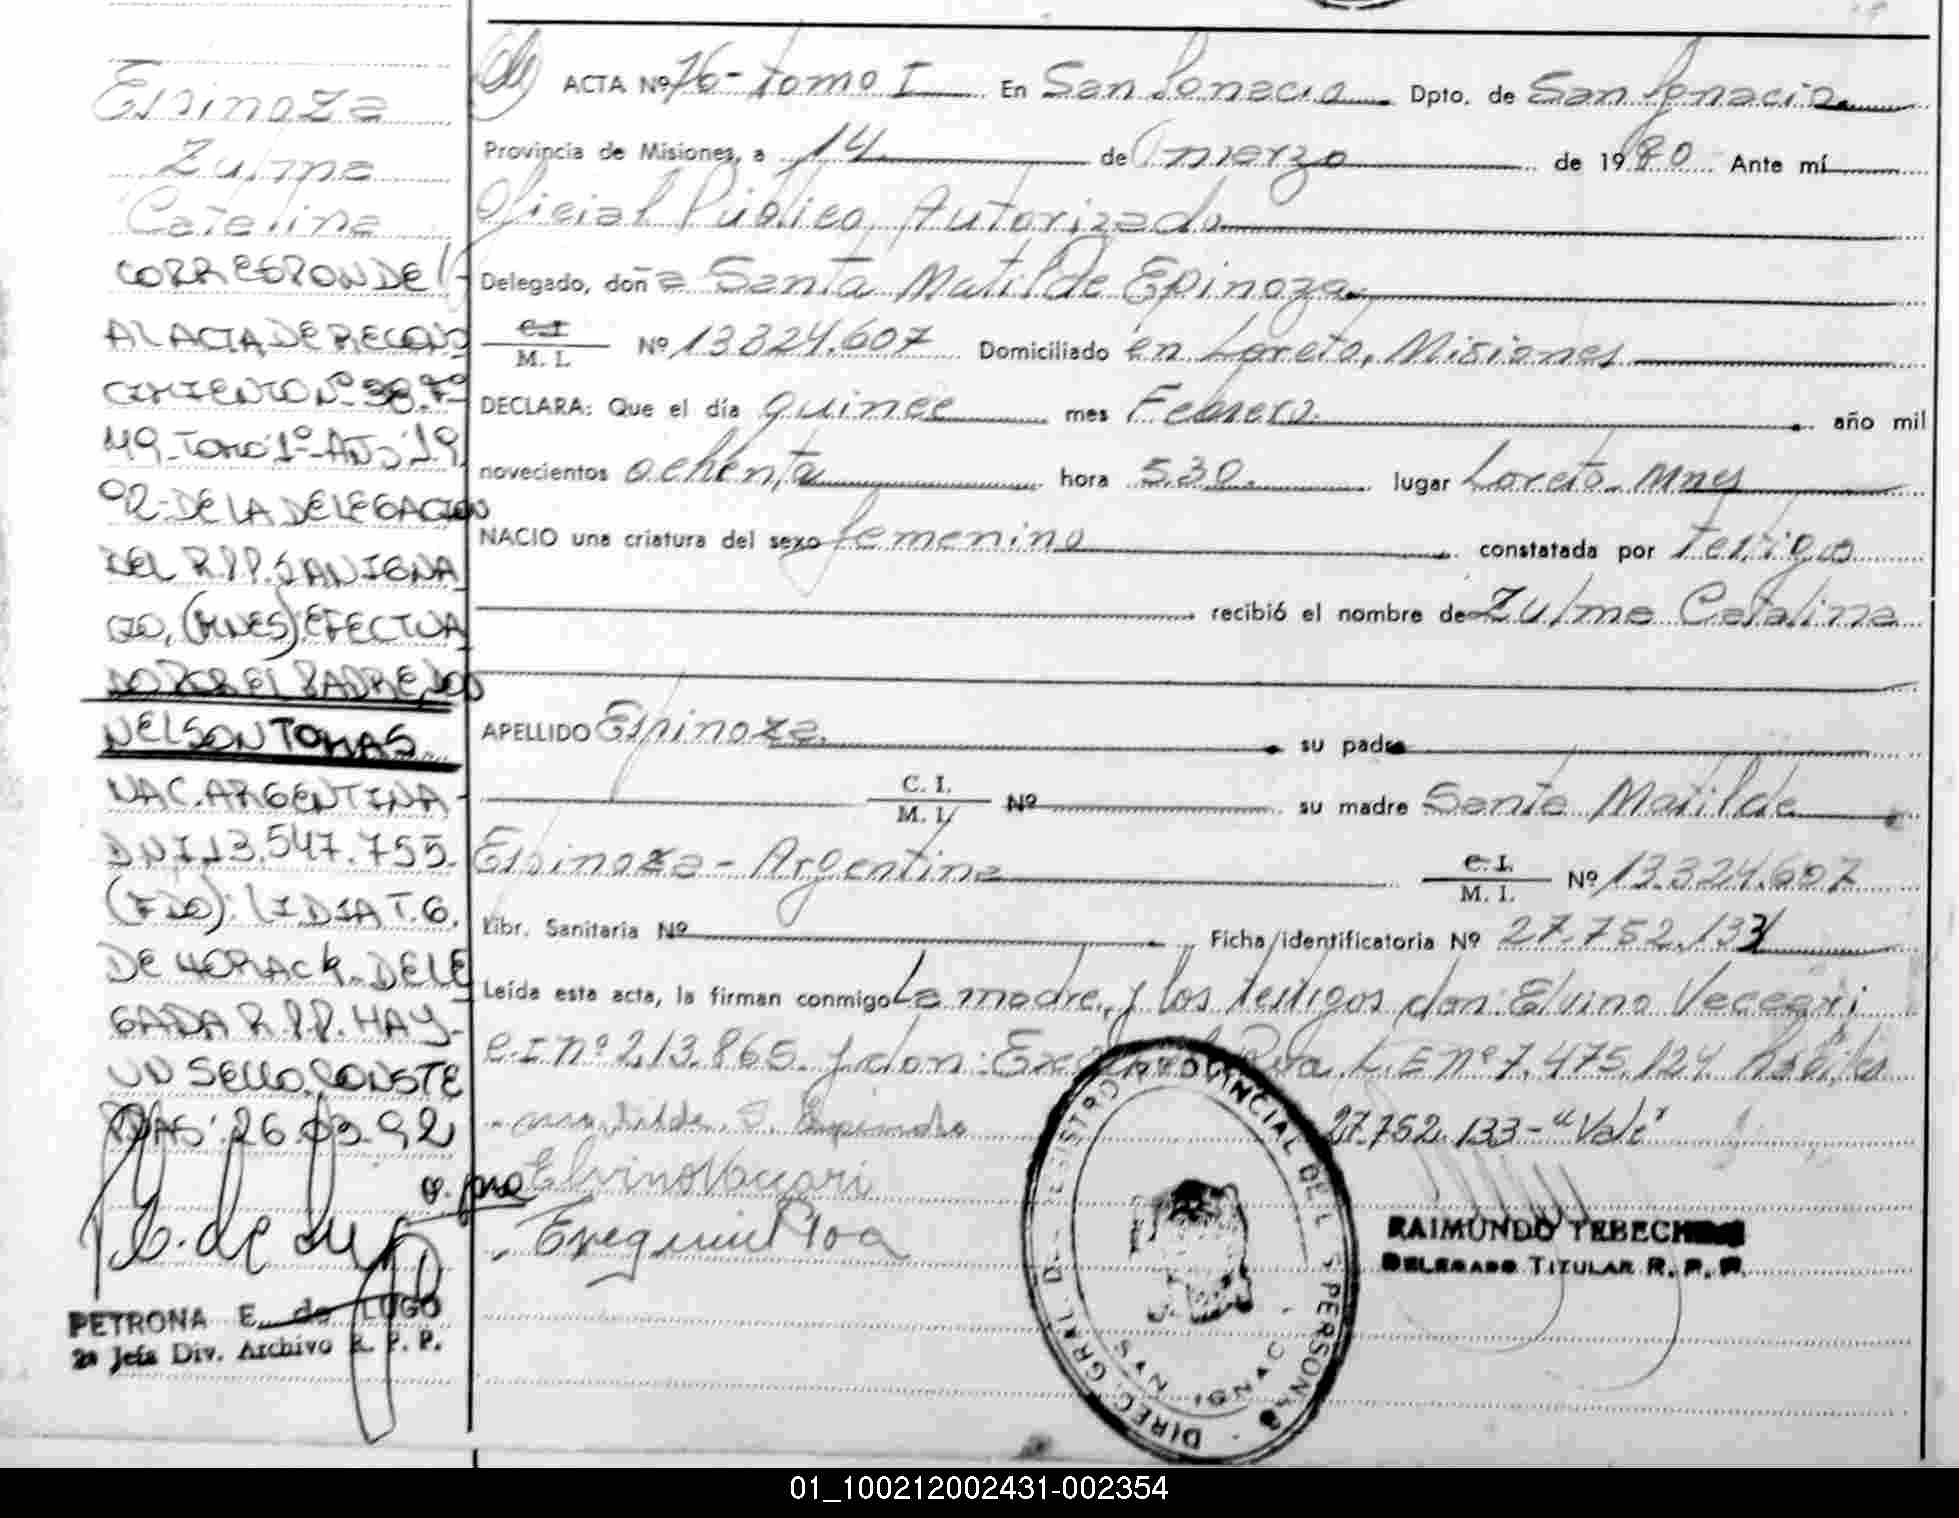 Espinoza
Zulma
Catalina
CORRESPONDE
AL ACTA DE RECONO
CIMIENTO Nº 38. Fº
49 - TOMO 1º - AÑO 19
92 - DE LA DELEGACION
DEL R.P.P. SAN IGNA
CIO, (MNES) EFECTUA
DO POR EL PADRE, DON
NELSON TOMAS
NAC. ARGENTINA -
DNI 13.547.755.
(FDO): LIDIA T. G.
DE HORACK - DELE
GADA R.P.P. HAY -
UN SELLO. CONSTE
26.03.92
PETRONA E. de LUGO
2ª Jefa Div. Archivo R. P. P.
ACTA Nº 76 - tomo I En San Ignacio Dpto. de San Ignacio
Provincia de Misiones, a 14 de marzo de 1980 Ante mí
Oficial Público Autorizado
Delegado, doña Santa Matilde Epinoza
C.I. M. I. Nº 13324.607 Domiciliado en Loreto, Misiones
DECLARA: Que el día quince mes Febrero año mil
novecientos ochenta hora 5.30. lugar Loreto - Mnes
NACIO una criatura del sexo femenino constatada por Testigos
recibió el nombre de Zulma Catalina
APELLIDO Espinoza su padre
C. I. M. I. Nº su madre Santa Matilde
Espinoza - Argentina C. I. M. I. Nº 13.324.607
Libr. Sanitaria Nº Ficha identificatoria Nº 27.752.133
Leída esta acta, la firman conmigo La madre, y los testigos don: Elvino Veccari
C.I nº 213.865. y don: L.E nº 7.475.124
27.752.133 - "Vale"
Elvino Vaccari
RAIMUNDO
DELEGADO TITULAR R. P. P.
DIREC. GRAL. DEL REGISTRO PROVINCIAL DE LAS PERSONAS
SAN IGNACIO
01_100212002431-002354